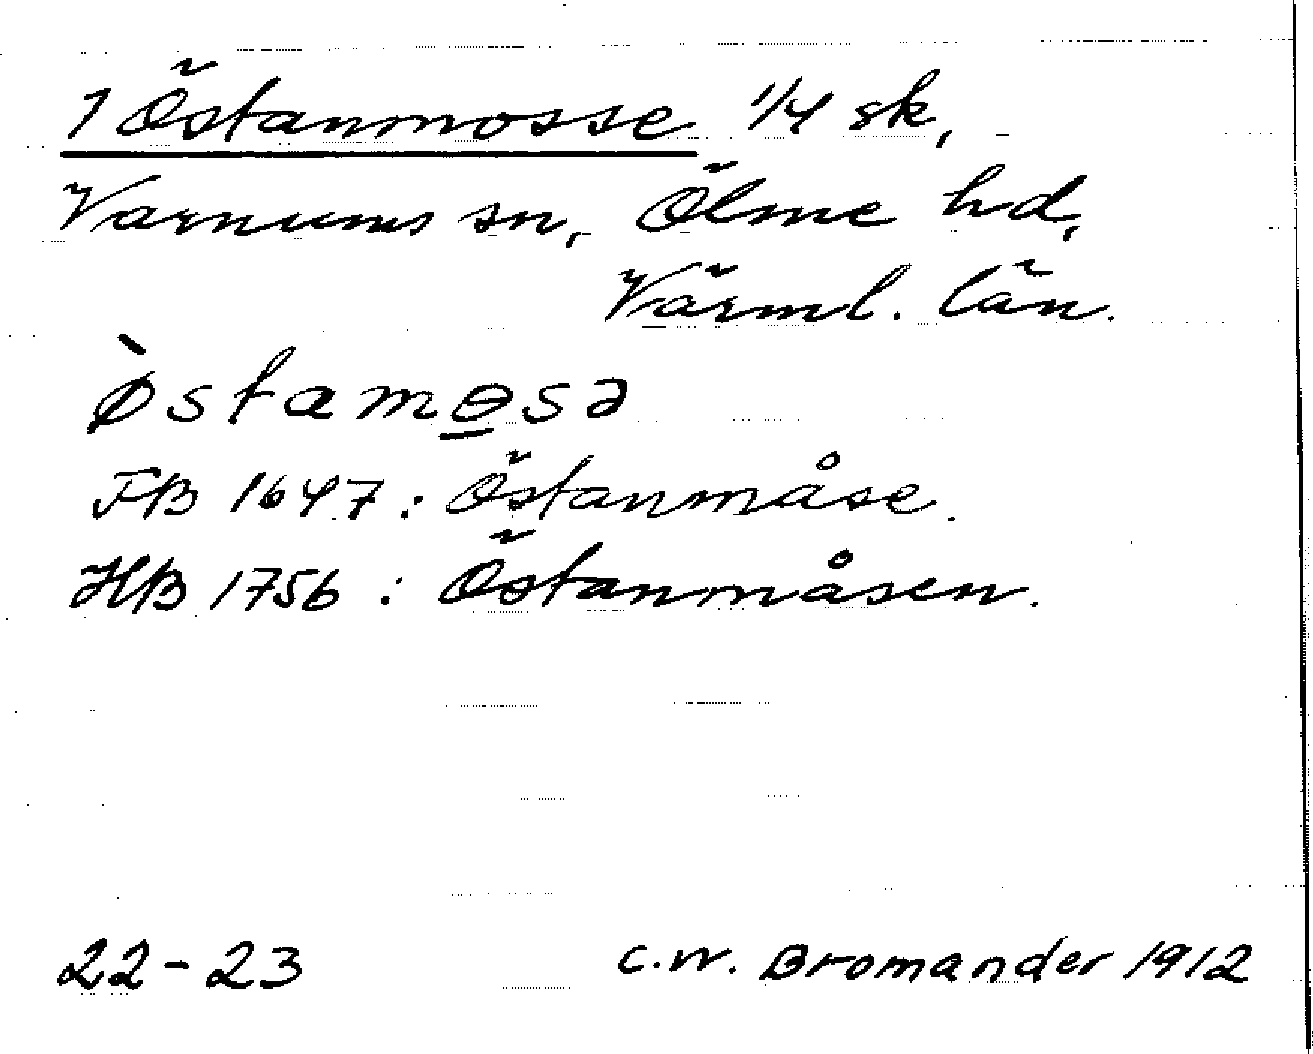 1 Östanmosse 1/4 sk,
Varnums sn, Ölme hd,
Värml. län.
ø̀stamɵ̲sə
JB 1647: Östanmåse.
HB 1756: Östanmåsen.
22-23 C.W. Bromander 1912